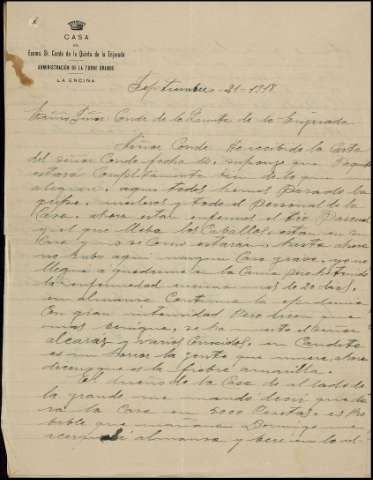 CASA
DEL
Excmo. Sr. Conde de la Quinta de la Enjarada
ADMINISTRACIÓN DE LA TORRE GRANDE
LA ENCINA
Septiembre 21-1918
Excmo Señor Conde de la Quinta de la Enjarada
Señor Conde He recibido la Carta
del señor Conde fecha 18, supongo que
estara Completamente bien de lo que me
alegrare, aqui todos hemos pasado la
gripe, medieros y todo el personal de la
Casa, ahora estan enfermos el tio Pascual
y el que lleba los Caballos estan en su
Casa y no se Como estaran, hasta ahora
no hubo aqui ningun Caso grave, yo no
llegue a quedarme en la Cama
la enfermedad encima mas de 20 dias,
en almansa Continua la epidemia
Con gran intensidad Pero dicen que
mas benigna, se ha muerto el
alcaraz y varios Conocidos, en Caudete
es un horror la gente que muere, ahora
dicen que es la fiebre amarilla.
El dueño de la Casa de al lado de
la grande me mando decir que
la Casa en 5000 Pesetas, es Pro
bable que mañana Domingo me
acerque a almansa y bere en lo